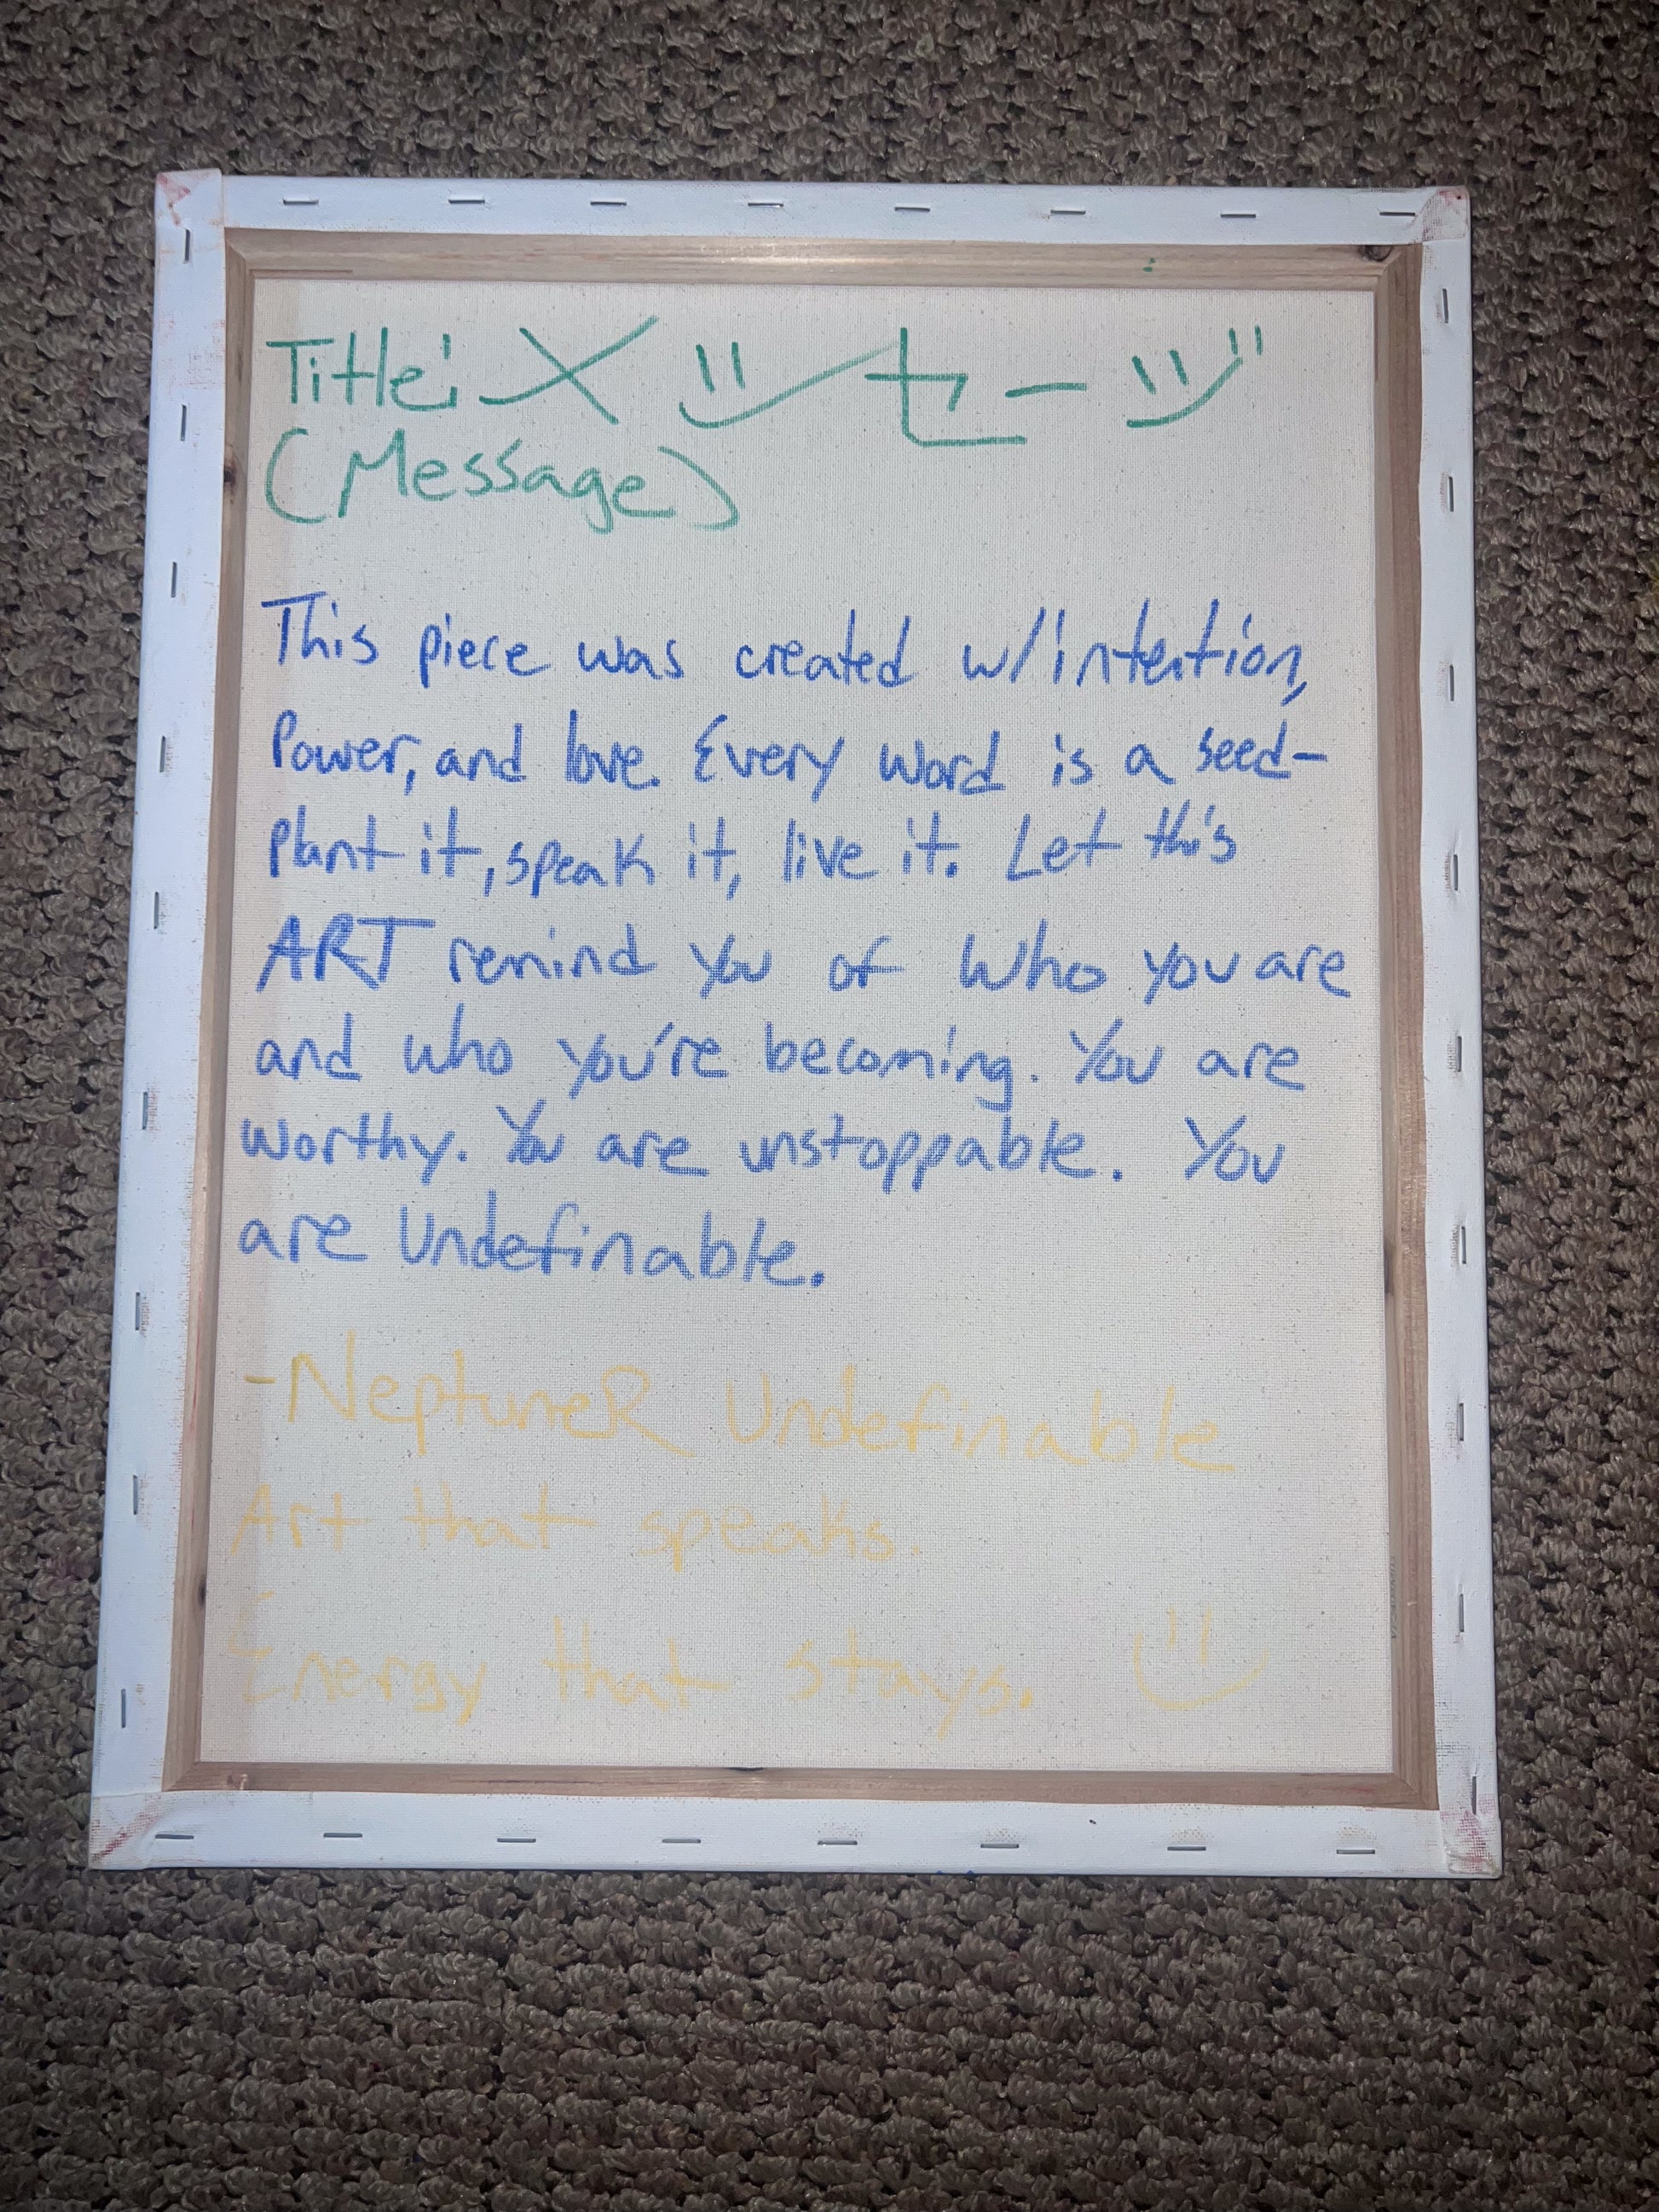 Title: メッセージ
(Message)
This piece was created w/intention,
Power, and love. Every word is a seed-
plant it, speak it, live it. Let this
ART remind you of Who you are
and who you're becoming. You are
worthy. You are unstoppable. You
are Undefinable.
-NeptuneR Undefinable
Art that speaks.
Energy that stays.